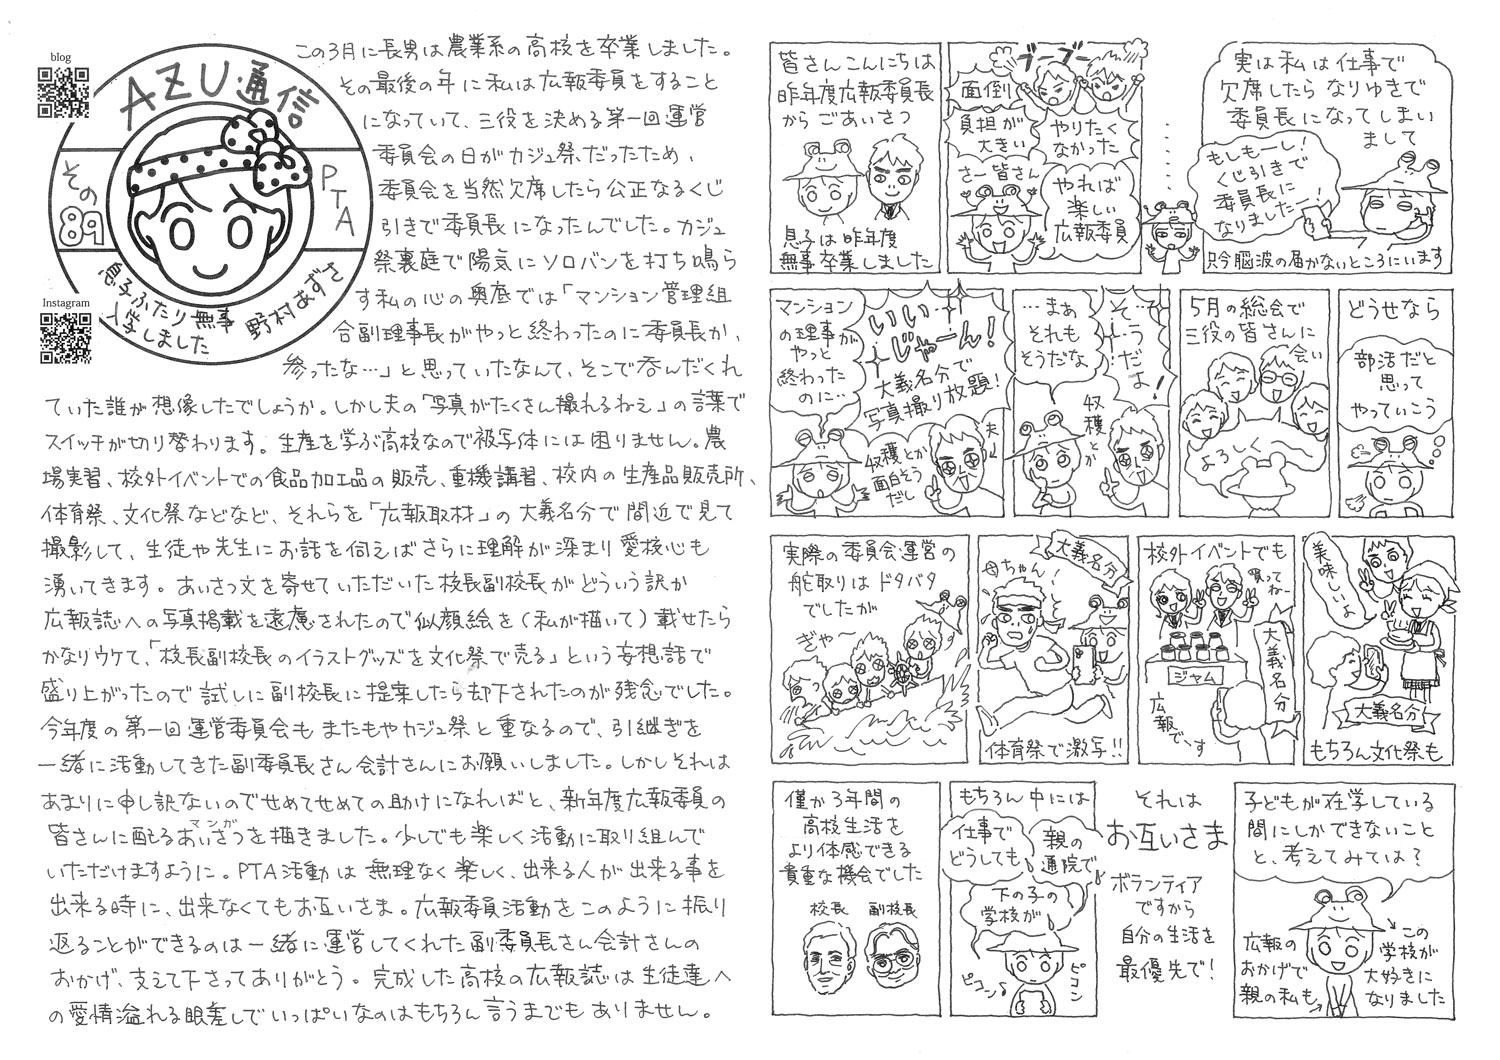 blog
AZU通信
その89
PTA
Instagram
息子ふたり無事
入学しました
野村あずさ
この3月に長男は農業系の高校を卒業しました。
その最後の年に私は広報委員をすること
になっていて、三役を決める第一回運営
委員会の日がカジュ祭だったため、
委員会を当然欠席したら公正なるくじ
引きで委員長になったんでした。カジュ
祭裏庭で陽気にソロバンを打ち鳴ら
す私の心の奥底では「マンション管理組
合副理事長がやっと終わったのに委員長か、
参ったな…」と思っていたなんて、そこで呑んだくれ
ていた誰が想像したでしょうか。しかし夫の「写真がたくさん撮れるねぇ」の言葉で
スイッチが切り替わります。生産を学ぶ高校なので被写体には困りません。農
場実習、校外イベントでの食品加工品の販売、重機講習、校内の生産品販売所、
体育祭、文化祭などなど、それらを「広報取材」の大義名分で間近で見て
撮影して、生徒や先生にお話を伺えばさらに理解が深まり愛校心も
湧いてきます。あいさつ文を寄せていただいた校長副校長がどういう訳か
広報誌への写真掲載を遠慮されたので似顔絵を(私が描いて)載せたら
かなりウケて、「校長副校長のイラストグッズを文化祭で売る」という妄想話で
盛り上がったので試しに副校長に提案したら却下されたのが残念でした。
今年度の第一回運営委員会もまたもやカジュ祭と重なるので、引継ぎを
一緒に活動してきた副委員長さん会計さんにお願いしました。しかしそれは
あまりに申し訳ないのでせめてせめての助けになればと、新年度広報委員の
マンガ
皆さんに配るあいさつを描きました。少しでも楽しく活動に取り組んで
いただけますように。PTA活動は無理なく楽しく、出来る人が出来る事を
出来る時に、出来なくてもお互いさま。広報委員活動をこのように振り
返ることができるのは一緒に運営してくれた副委員長さん会計さんの
おかげ、支えて下さってありがとう。完成した高校の広報誌は生徒達へ
の愛情溢れる眼差しでいっぱいなのはもちろん言うまでもありません。
皆さんこんにちは
昨年度広報委員長
からごあいさつ
息子は昨年度
無事卒業しました
ブーブー
面倒
負担が
大きい
やりたく
なかった
さー皆さん
やれば
楽しい
広報委員
……
実は私は仕事で
欠席したらなりゆきで
委員長になってしまい
まして
もしもーし!
くじ引きで
委員長に
なりましたー!
只今脳波の届かないところにいます
マンション
の理事が
やっと
終わった
のに…
いい
じゃーん!
大義名分で
写真撮り放題!
夫
収穫とか
面白そう
だし
…まぁ
それも
そうだな
そ…
そうだよ!
収穫とか
5月の総会で
三役の皆さんに
会い
よろしく
どうせなら
部活だと
思って
やっていこう
実際の委員会運営の
舵取りはドタバタ
でしたが
ぎゃ〜
大義名分
母ちゃん!
体育祭で激写!!
校外イベントでも
買ってねー
ジャム
大義名分
広報でーす
美味しいよ
大義名分
もちろん文化祭も
僅か3年間の
高校生活を
より体感できる
貴重な機会でした
校長
副校長
もちろん中には
仕事で
どうしても
親の
通院で
下の子の
学校が
ピコン♪
ピコン
それは
お互いさま
ボランティア
ですから
自分の生活を
最優先で!
子どもが在学している
間にしかできないこと
と、考えてみては?
広報の
おかげで
親の私も
この
学校が
大好きに
なりました